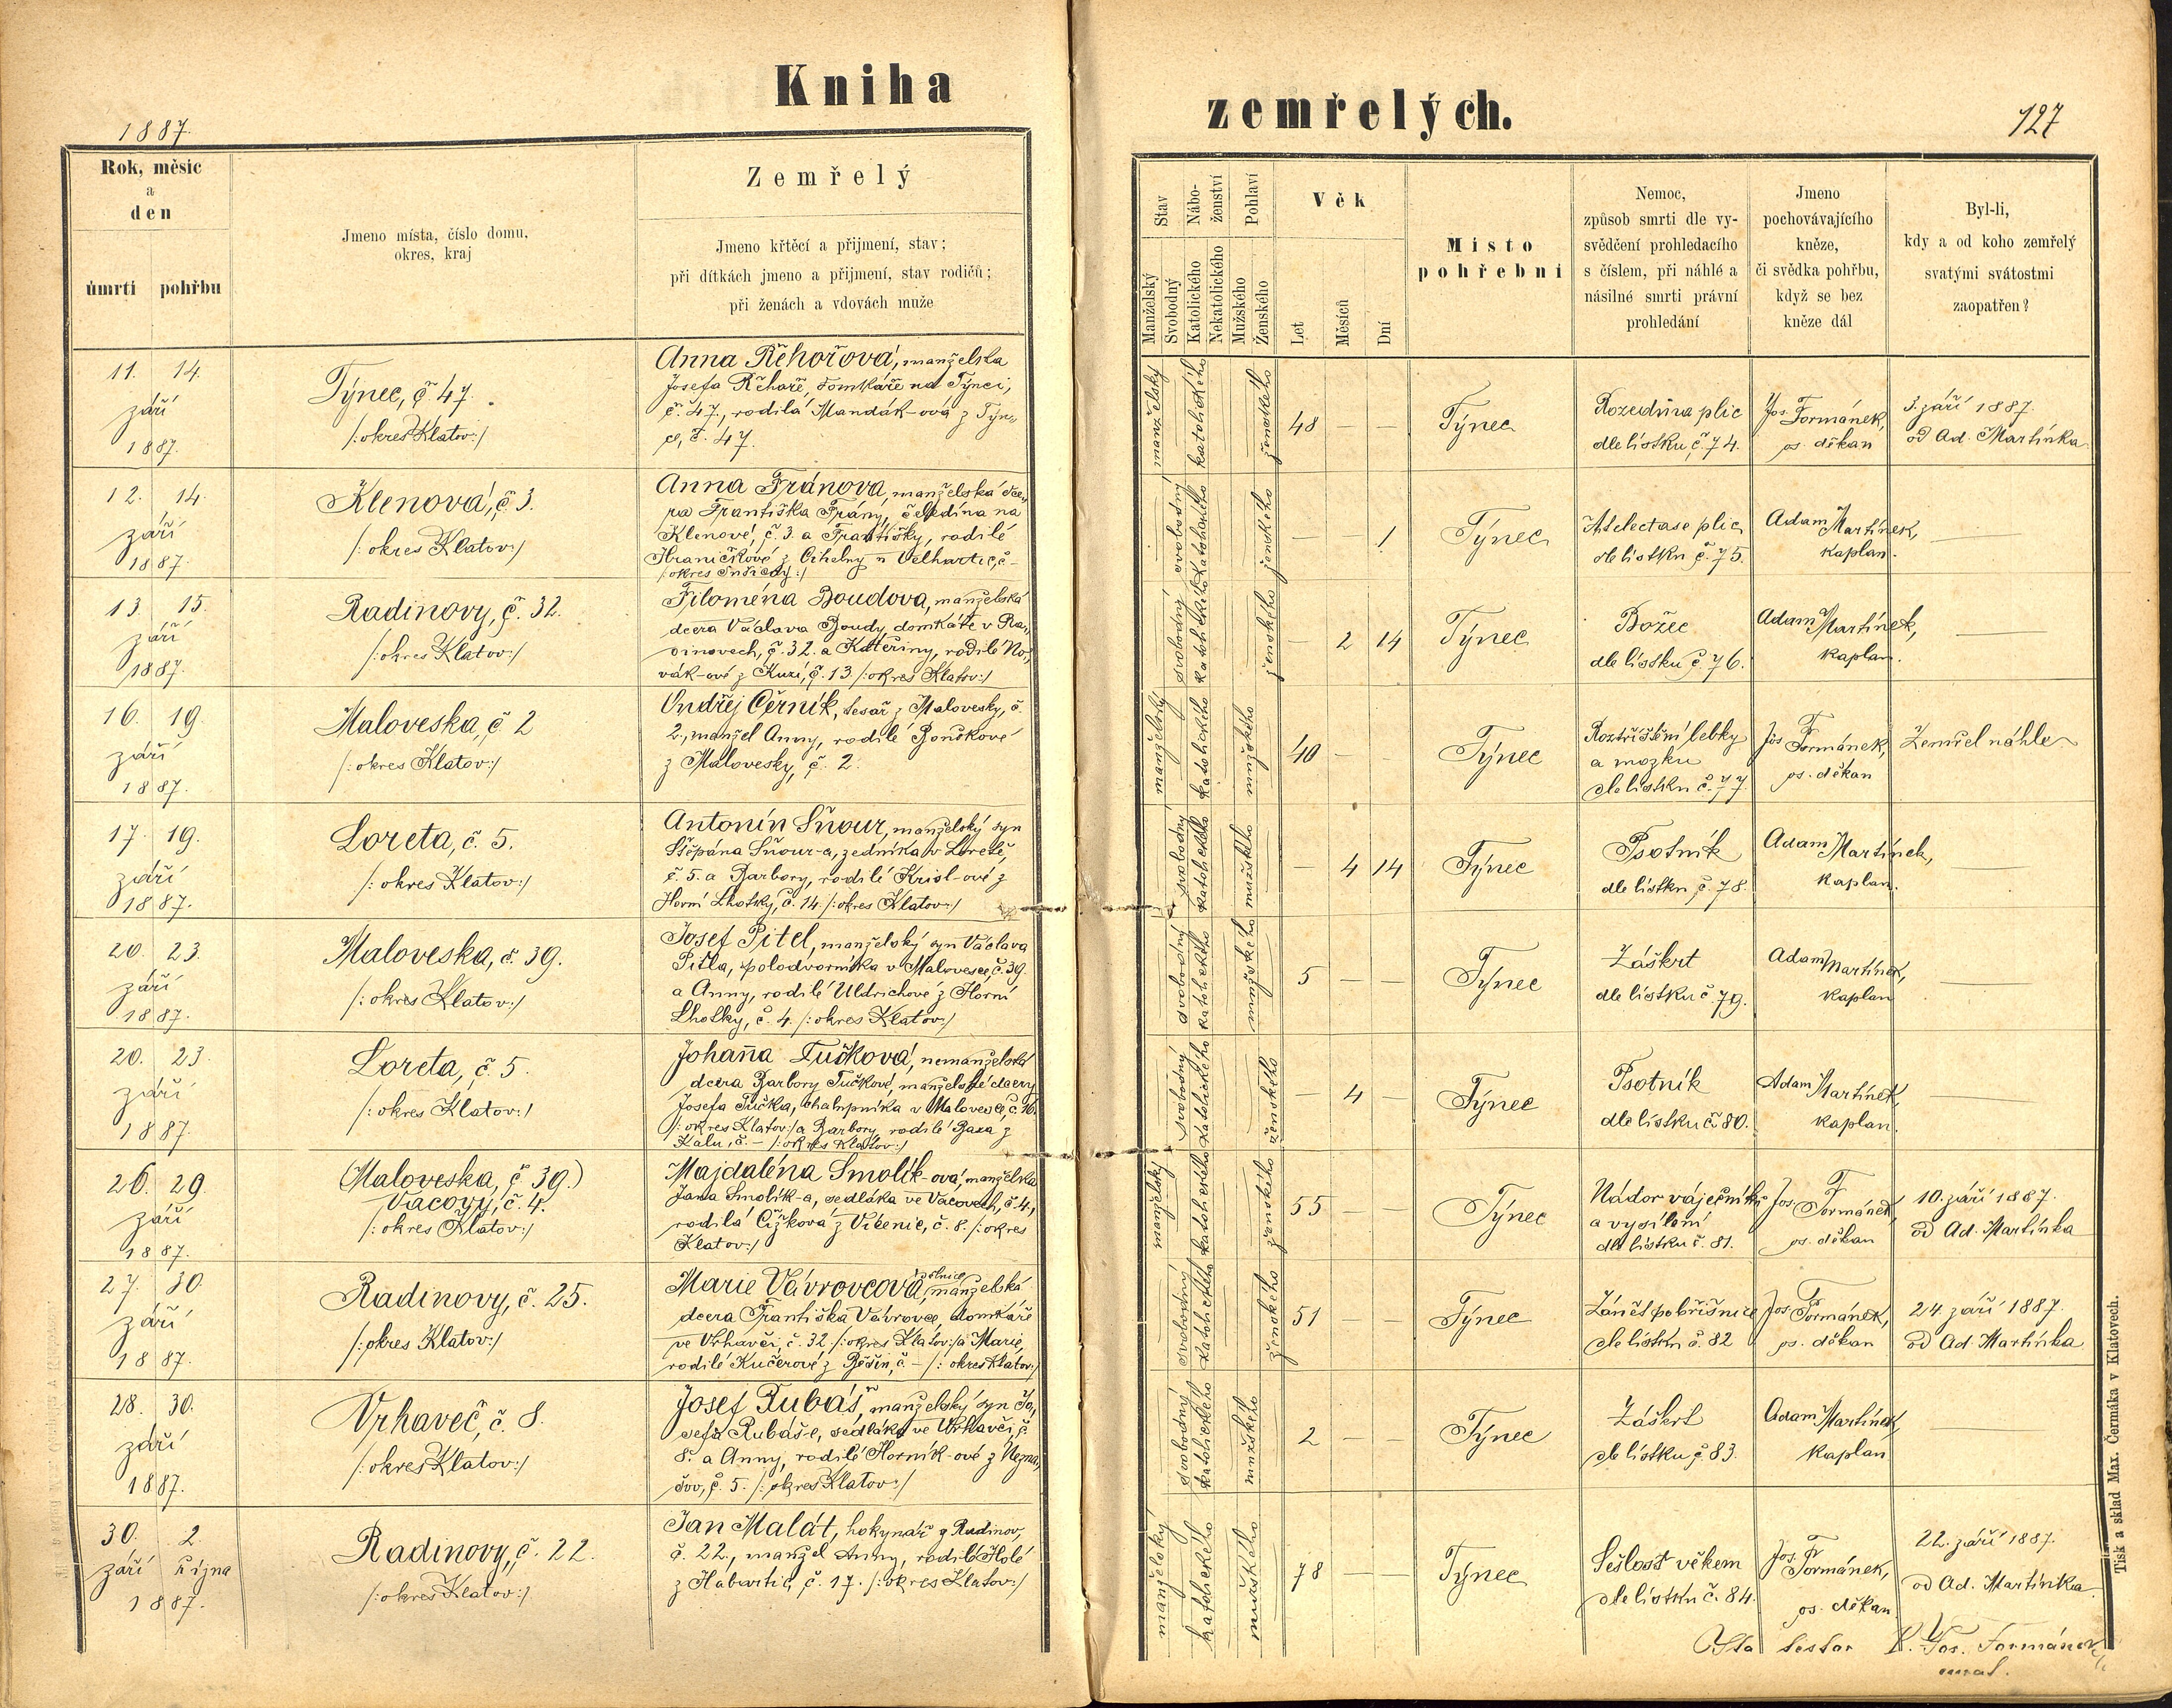 Kniha
zemřelých.
1887.
127
Rok, měsíc
a
den
úmrtí pohřbu
Jmeno místa, číslo domu,
okres, kraj
Zemřelý
Jmeno křtěcí a přijmení, stav;
při dítkách jmeno a přijmení, stav rodičů;
při ženách a vdovách muže
Stav
Manželský
Svobodný
Nábo-
ženství
Katolického
Nekatolického
Pohlaví
Mužského
Ženského
Věk
Let
Měsíců
Dní
Místo
pohřební
Nemoc,
způsob smrti dle vy-
svědčení prohledacího
s číslem, při náhlé a
násilné smrti právní
prohledání
Jmeno
pochovávajícího
kněze,
či svědka pohřbu,
když se bez
kněze dál
Byl-li,
kdy a od koho zemřelý
svatými svátostmi
zaopatřen?
11. 14.
září
1887.
Týnec, č 47.
/: okres Klatov:/
Anna Řehořová, manželka
Josefa Řehoře, domkáře na Týnci,
č. 47., rodilá Mandák-ová z Týn-
ce, č. 47.
manželský
katolického
ženského
48 — —
Týnec
Rozedma plic
dle lístku č. 74.
Jos. Formánek,
os. děkan
3. září 1887.
od Ad. Martínka
12. 14.
září
1887.
Klenová, č 3.
/: okres Klatov:/
Anna Fránova, manželská dce-
ra Františka Frány, čeledína na
Klenové, č. 3. a Františky, rodilé
Hraničkové z Cihelny u Velhartic, č –
/: okres Sušický:/
svobodný
katolického
ženského
— — 1
Týnec
Atelectase plic
dle lístku č. 75.
Adam Martínek,
kaplan.
—
13. 15.
září
1887.
Radinovy, č. 32.
/: okres Klatov:/
Filoména Boudova, manželská
dcera Václava Boudy, domkáře v Ra-
dinovech, č. 32. a Kateřiny, rodilé No-
vák-ové z Kuzí, č. 13. /: okres Klatov:/
svobodný
katolického
ženského
— 2 14
Týnec
Božec
dle lístku č 76.
Adam Martínek,
kaplan.
—
16. 19.
září
1887.
Maloveska, č 2
/: okres Klatov:/
Ondřej Černík, tesař z Malovesky, č
2., manžel Anny, rodilé Bouškové
z Malovesky, č. 2.
manželský
katolického
mužského
40 — —
Týnec
Roztříštění lebky
a mozku
dle lístku č. 77.
Jos. Formánek,
os. děkan
Zemřel náhle.
17. 19.
září
1887.
Loreta, č. 5.
/: okres Klatov:/
Antonín Šnour, manželský syn
Štěpána Šnour-a, zedníka v Loretě,
č. 5. a Barbory, rodilé Krisl-ové z
Horní Lhotky, č. 14. /: okres Klatov:/
svobodný
katolického
mužského
— 4 14
Týnec
Psotník
dle lístku č. 78.
Adam Martínek,
kaplan.
—
20. 23.
září
1887.
Maloveska, č. 39.
/: okres Klatov:/
Josef Pitel, manželský syn Václava
Pitla, polodvorníka v Malovesce, č. 39.
a Anny, rodilé Uldrichové z Horní
Lhotky, č. 4. /: okres Klatov:/
svobodný
katolického
mužského
5 — —
Týnec
Záškrt
dle lístku č. 79.
Adam Martínek,
kaplan
—
20. 23.
září
1887.
Loreta, č. 5.
/: okres Klatov:/
Johaňa Tučková, nemanželská
dcera Barbory Tučkové, manželské dcery
Josefa Tučka, chalupníka v Malovesce, č. 16.
/: okres Klatov:/ a Barbory, rodilé Baxa z
Kalu, č. – /: okres Klatov:/
svobodný
katolického
ženského
— 4 —
Týnec
Psotník
dle lístku č. 80.
Adam Martínek,
kaplan.
—
26. 29.
září
1887.
(Maloveska, č 39.)
Vacovy, č. 4.
/: okres Klatov:/
Majdaléna Smolík-ová, manželka
Jana Smolík-a, sedláka ve Vacovech, č. 4.,
rodilá Čížková z Vícenic, č. 8. /: okres
Klatov:/
manželský
katolického
ženského
55 — —
Týnec
Nádor vaječníků
a vysílení
dle lístku č. 81.
Jos. Formánek,
os. děkan
10. září 1887.
od Ad. Martínka
27. 30.
září
1887.
Radinovy, č. 25.
/: okres Klatov:/
Marie Vávrovcová, manželská
dcera Františka Vávrovce, domkáře
ve Vrhavči, č. 32. /: okres Klatov:/ a Marie,
rodilé Kučerové z Běšin, č. – /: okres Klatov:/
svobodný
katolického
ženského
51 — —
Týnec
Zánět pobřišnice
dle lístku č. 82
Jos. Formánek,
os. děkan
24. září 1887.
od Ad. Martínka
28. 30.
září
1887.
Vrhaveč, č. 8.
/: okres Klatov:/
Josef Rubáš, manželský syn Jo-
sefa Rubáš-e, sedláka ve Vrhavči, č.
8. a Anny, rodilé Horník-ové z Nezna-
šov, č. 5. /: okres Klatov:/
svobodný
katolického
mužského
2 — —
Týnec
Záškrt
dle lístku č. 83.
Adam Martínek,
kaplan
—
30. 2.
září října
1887.
Radinovy, č. 22.
/: okres Klatov:/
Jan Malát, hokynář z Radinov,
č. 22., manžel Anny, rodilé Holé
z Habartic, č. 17. /: okres Klatov:/
manželský
katolického
mužského
78 — —
Týnec
Sešlost věkem
dle lístku č. 84.
Jos. Formánek,
os. děkan
22. září 1887.
od Ad. Martínka
P. Jos. Formánek,
Tisk a sklad Max. Čermáka v Klatovech.